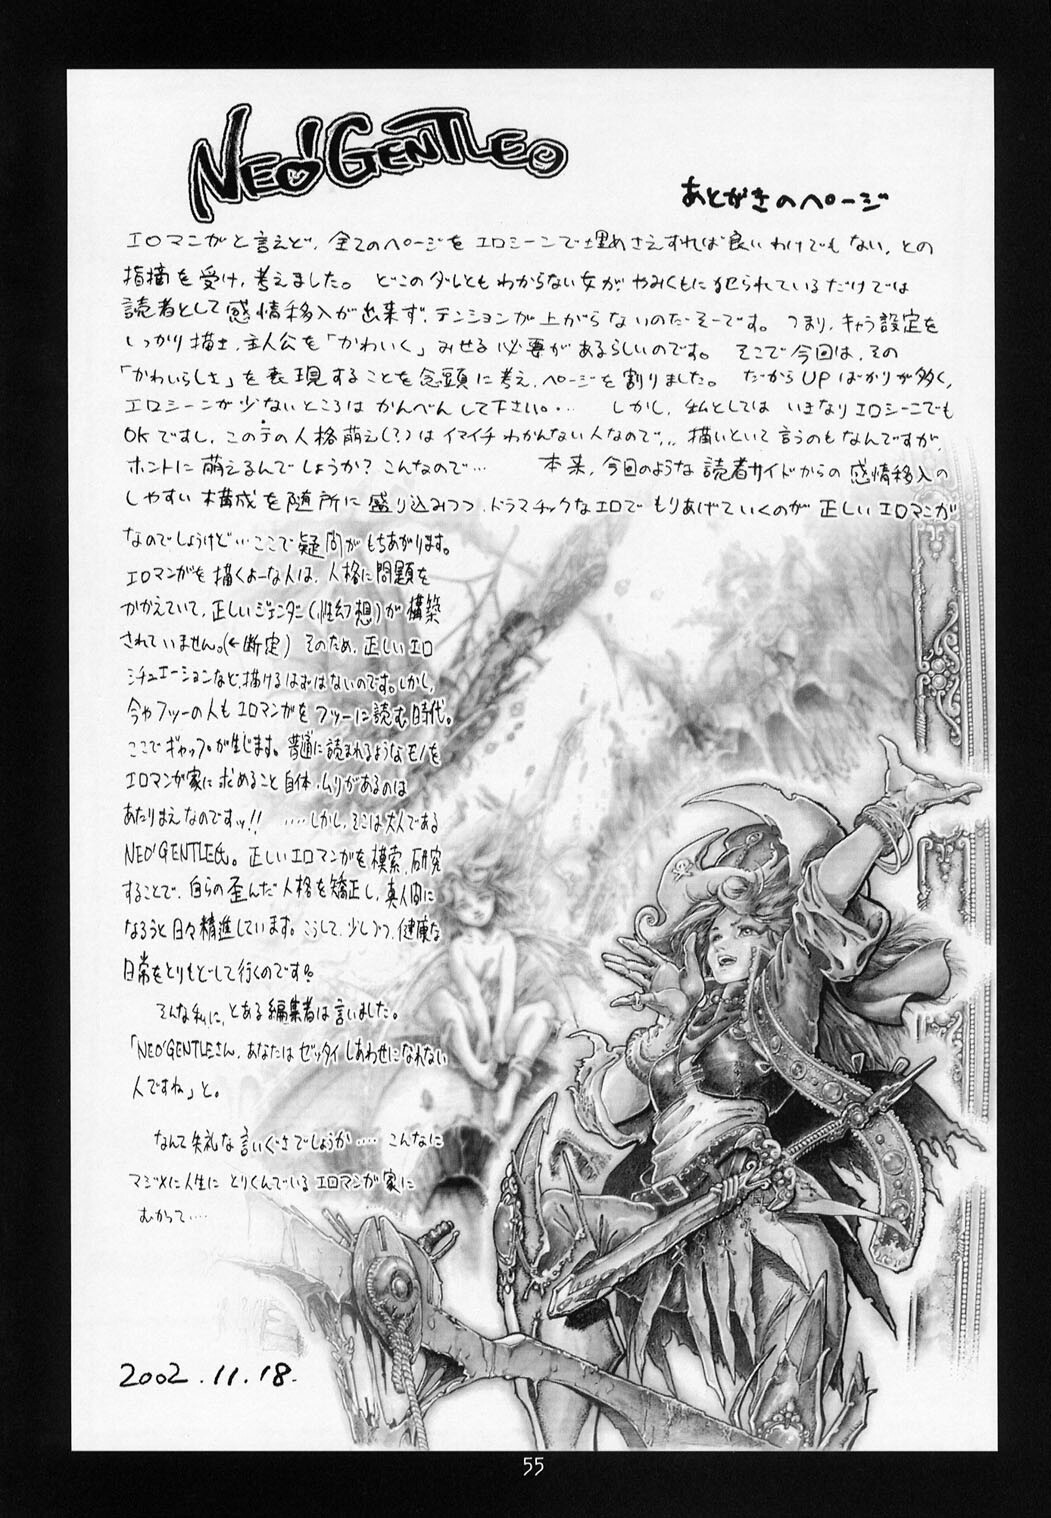 NEO'GENTLE
あとがきのページ
エロマンガと言えど、全てのページをエロシーンで埋めさえすれば良いわけでもない、との
指摘を受け、考えました。 どこのダレともわからない女が、やみくもに犯られているだけでは
読者として感情移入が出来ず、テンションが上がらないのだそーです。つまり、キャラ設定を
しっかり描き、主人公を「かわいく」みせる必要があるらしいのです。 そこで今回は、その
「かわいらしさ」を表現することを念頭に考え、ページを割りました。 だからUPばかりが多く、
エロシーンが少ないところはかんべんして下さい。・・・ しかし、私としてはいきなりエロシーンでも
OKですし、このテの人格萌え(?)はイマイチわかんない人なので、、、描いといて言うのもなんですが、
ホントに萌えるんでしょうか? こんなので・・・ 本来、今回のような読者サイドからの感情移入の
しやすい構成を随所に盛り込みつつ、ドラマチックなエロでもりあげていくのが正しいエロマンガ
なのでしょうけど・・・ここで疑問がもちあがります。
エロマンガを描くよーな人は、人格に問題を
かかえていて、正しいジェンダー(性幻想)が構築
されていません。(←断定) そのため、正しいエロ
シチュエーションなど、描けるはずはないのです。しかし、
今やフツーの人もエロマンガをフツーに読む時代。
ここでギャップが生じます。普通に読まれるようなモノを
エロマンガ家に求めること自体、ムリがあるのは
あたりまえなのですッ!! ・・・・しかし、そこは大人である
NEO'GENTLE氏。正しいエロマンガを模索、研究
することで、自らの歪んだ人格を矯正し、真人間に
なろうと日々精進しています。こうして、少しづつ、健康な
日常をとりもどして行くのです。
そんな私に、とある編集者は言いました。
「NEO'GENTLEさん、あなたはゼッタイしあわせになれない
人ですね」と。
なんて失礼な言いぐさでしょうか・・・・ こんなに
マジメに人生にとりくんでいるエロマンガ家に
むかって・・・・
2002.11.18.
55